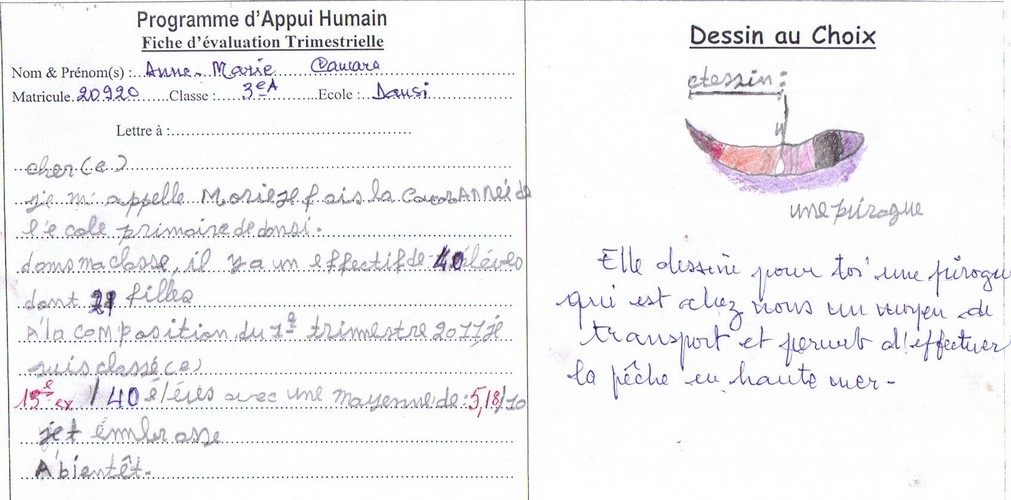 Programme d'Appui Humain
Fiche d'évaluation Trimestrielle
Nom & Prénom(s) : Anne-Marie Camara
Matricule 20920 Classe : 3eA Ecole : Dansi
Lettre à :
cher(e)
je m'appelle Marie je fais la Cours Année de
l'école primaire de dansi.
dans ma classe, il y a un effectif de 40 élèves
dont 21 filles
A la composition du 1e trimestre 2011 je
suis classé(e)
15e ex / 40 élèves avec une moyenne de : 5,18/10
je t'embrasse
A bientôt.
Dessin au Choix
dessin :
une pirogue
Elle dessine pour toi une pirogue
qui est chez nous un moyen de
transport et permet d'effectuer
la pêche en haute mer-